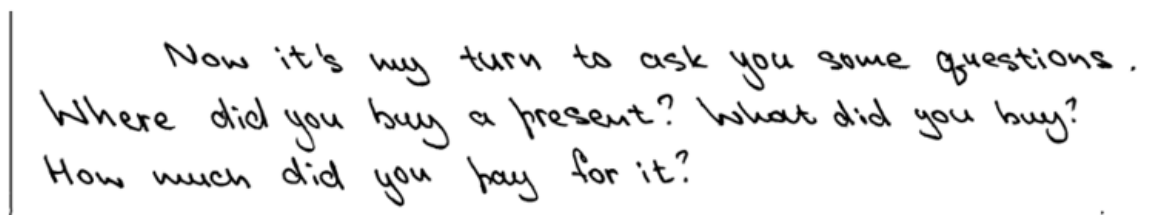 Now it's my turn to ask you some questions.
Where did you buy a present? What did you buy?
How much did you pay for it?